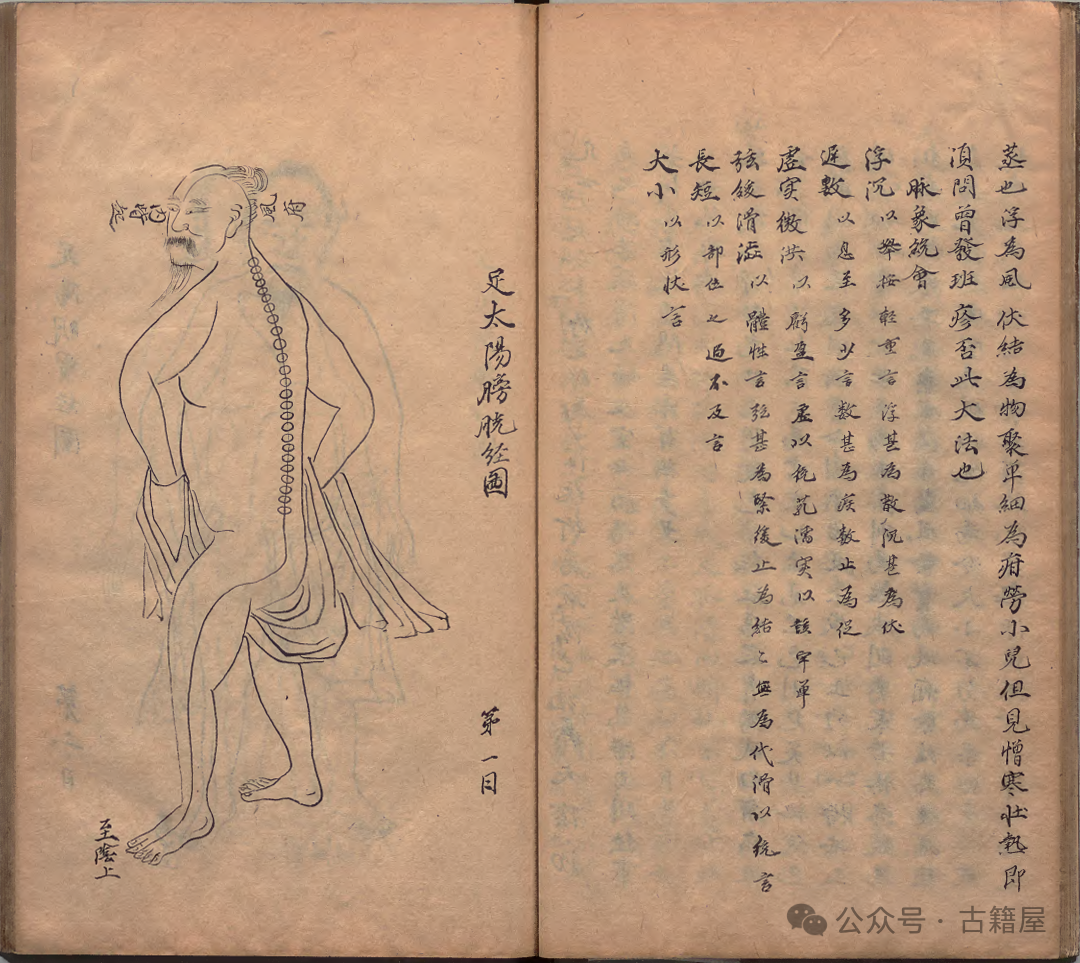 蒸也浮為風伏結為物聚單細為疳勞小兒但見憎寒壯熱即
須問曾發班疹否此大法也
脉象統會
浮沉以舉按輕重言浮甚為散沉甚為伏
遲數以息至多少言數甚為疾數止為促
虛實微洪以虧盈言虛以統芤濡實以該牢單
弦緩滑澁以體性言弦甚為緊緩止為結〻無為代滑以統言
長短以部位之過不及言
大小以形狀言
足太陽膀胱经圖
第一日
風府
内睛
至陰上
公众号·古籍屋